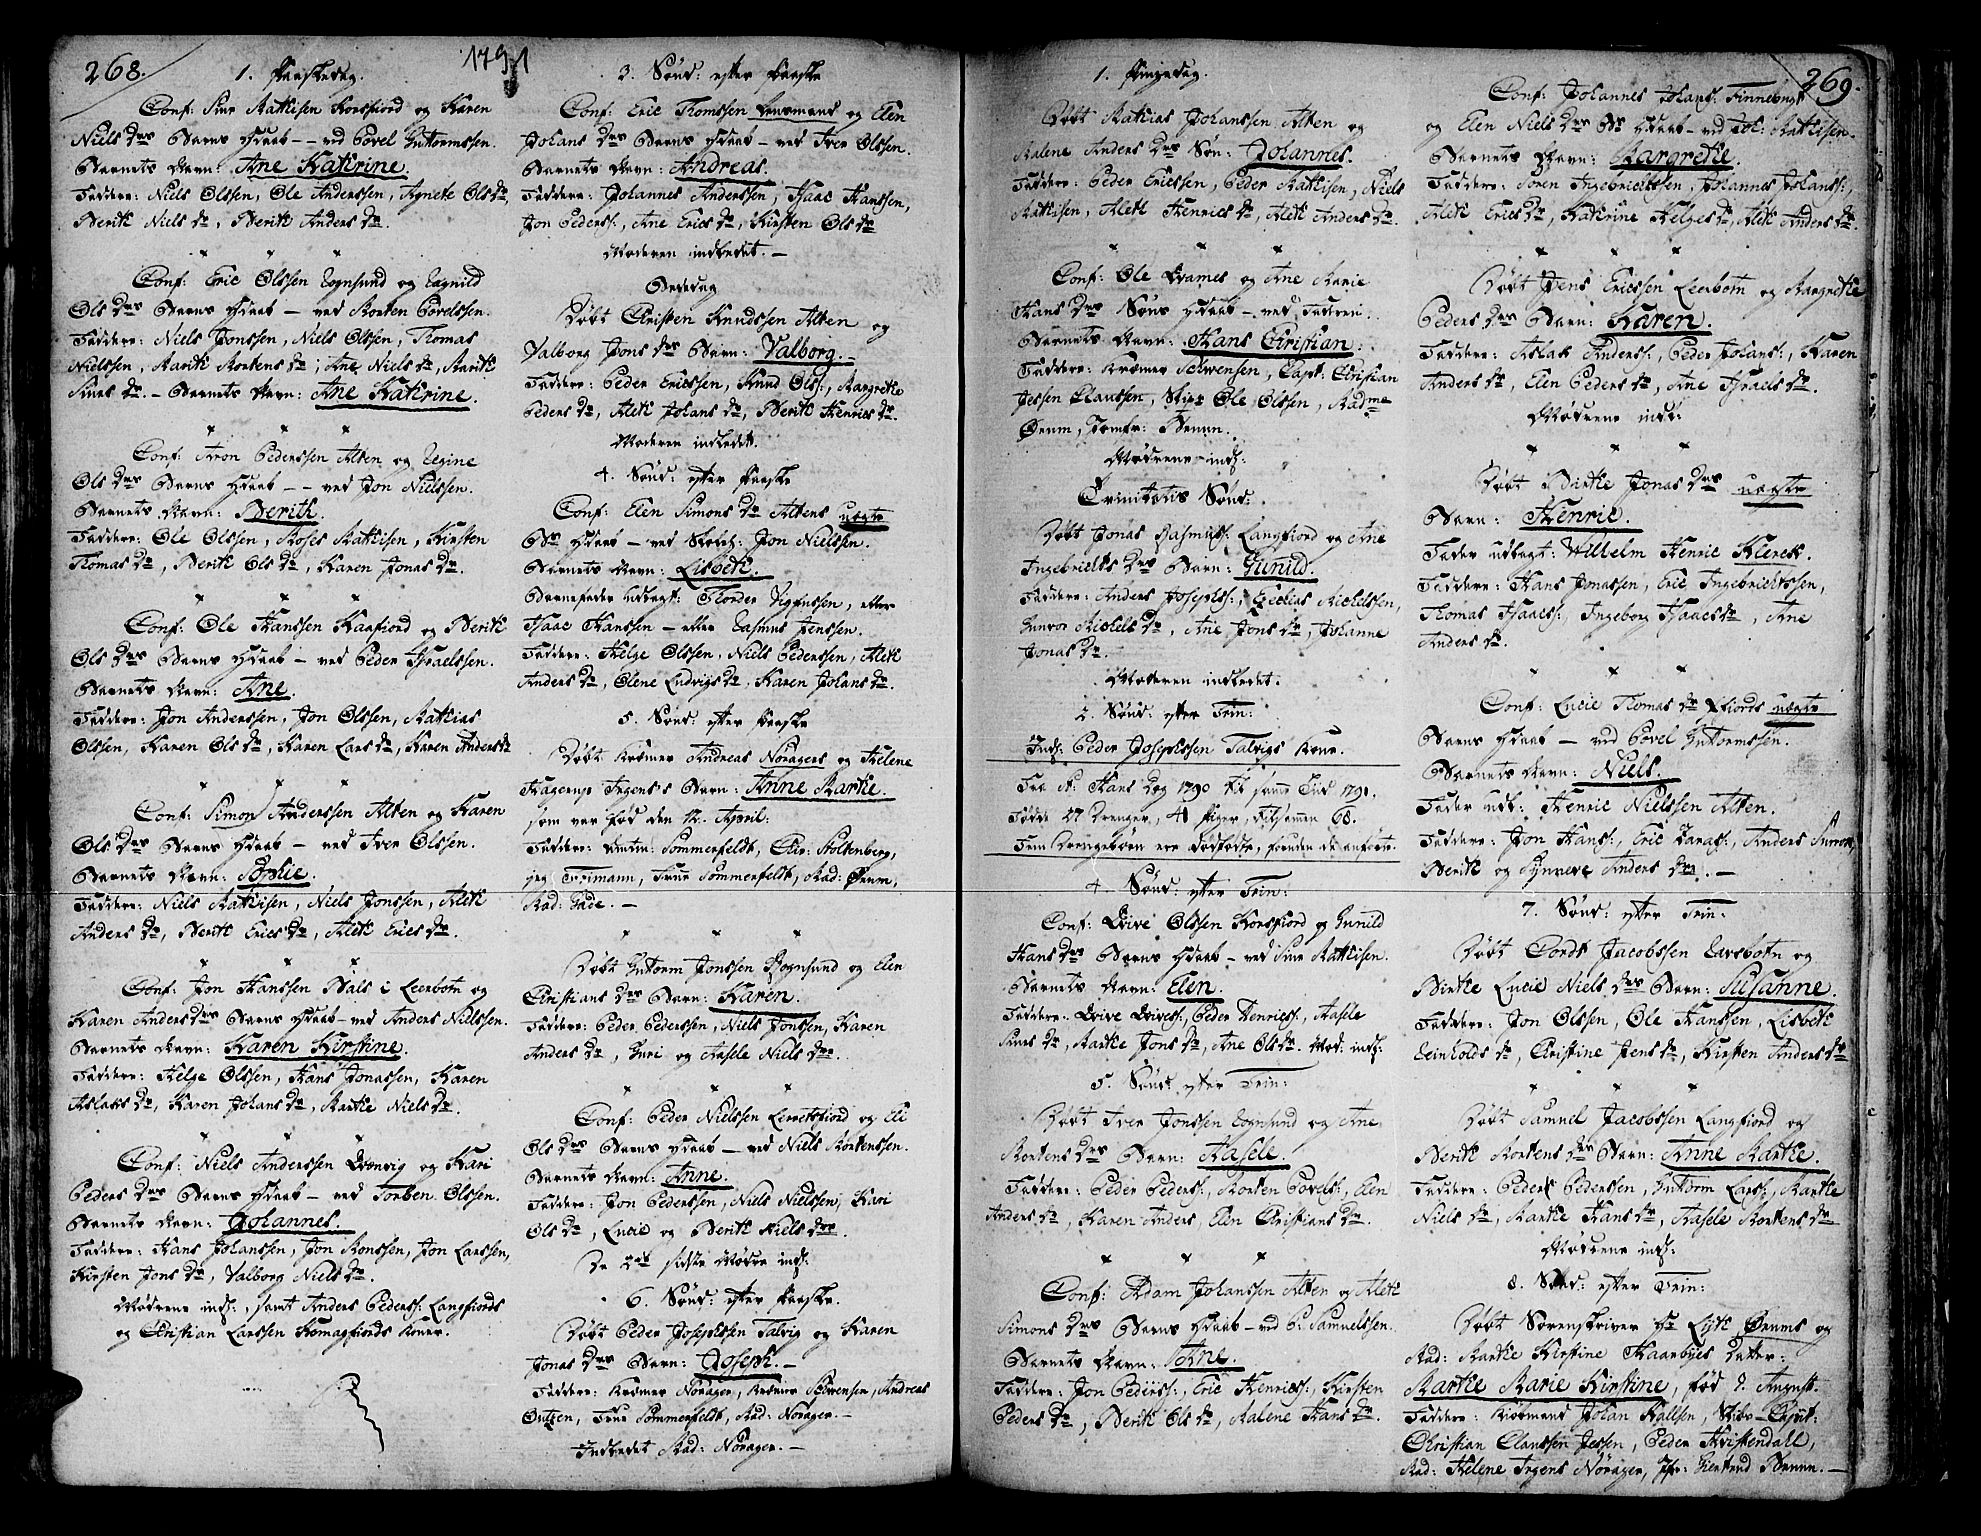 268.
1791
1. Paaskedag.
Conf: Siur Mathisen Korsfiord og Karen
Niels Drs Barns Hdaab — ved Povel Guttormssen.
Barnets Navn: Ane Kathrine.
Faddere: Niels Olssen, Ole Anderssen, Agnete Ols Dr,
Berith Niels Dr, Berith Anders Dr.
Conf: Eric Olssen Rognsund og Ragnild
Ols Drs Barns Hdaab — ved Morten Povelssen.
Faddere: Niels Jonssen, Niels Olssen, Thomas
Nielssen, Marith Mortens Dr, Ane Niels Dr, Marith
Siurs Dr. — Barnets Navn: Ane Kathrine.
Conf: Aron Pederssen Alten og Regine
Ols Drs Barns Hdaab — ved Jon Nielssen.
Barnets Navn: Berith.
Faddere: Ole Olssen, Moses Mathisen, Kirsten
Thomas Dr, Berith Ols Dr, Karen Jonas Dr.
Conf: Ole Hanssen Kaafiord og Berith
Ols Drs Barns Hdaab — ved Peder Israelssen.
Barnets Navn: Ane.
Faddere: Jon Anderssen, Jon Olssen, Mathias
Olssen, Karen Ols Dr, Karen Lars Dr, Karen Anders Dr
Conf: Simon Anderssen Alten og Karen
Ols Drs Barns Hdaab — ved Iver Olssen.
Barnets Navn: Sophie.
Faddere: Niels Mathisen, Niels Jonssen, Aleth
Anders Dr, Berith Erics Dr, Aleth Erics Dr.
Conf: Jon Hanssen Nals i Leerbotn og
Karen Anders Drs Barns Hdaab — ved Anders Nielssen.
Barnets Navn: Karen Kirstine.
Faddere: Helge Olssen, Hans Jonassen, Karen
Aslaks Dr, Karen Johans Dr, Marthe Niels Dr.
Conf: Niels Anderssen Qvenvig og Kari
Peders Drs Barns Hdaab — ved Torben Olssen.
Barnets Navn: Johannes.
Faddere: Hans Johanssen, Jon Monssen, Jon Larssen,
Kirsten Jons Dr, Valborg Niels Dr.
Mødrene indl:, samt Anders Peders: Langfiords
og Christian Larssen Komagfiords Koner.
3. Sønd: efter Paaske
Conf: Eric Thomssen Lensmand og Elen
Johans Drs Barns Hdaab — ved Iver Olssen.
Barnets Navn: Andreas.
Faddere: Johannes Anderssen, Isaac Hanssen,
Jon Peders:, Ane Erics Dr, Kirsten Ols Dr
Moderen indledet. —
Bededag
Døbt Christen Knudssen Alten og
Valborg Jons Drs Barn: Valborg. —
Faddere: Peder Ericssen, Knud Ols:, Margrethe
Peders Dr, Aleth Johans Dr, Berith Henrics Dr.
Moderen indledet.
4. Sønd: efter Paaske
Conf: Elen Simons Dr Altens uægte
Bs Hdaab — ved Skoleh: Jon Nielssen.
Barnets Navn: Lisbeth.
Barnefader udlagt: Thorder Vigfussen, eller
Isaac Hanssen — eller Rasmus Jenssen.
Faddere: Helge Olssen, Niels Pederssen, Aleth
Anders Dr, Olene Ludvigs Dr, Karen Johans Dr.
5. Sønd: efter Paaske
Døbt Kræmer Andreas Noragers og Helene
Hagerup Irgens's Barn: Anne Marthe.
som var fød den 12. April:
Faddere: Amtm: Sommerfeldt, Chir: Stoltenberg,
jeg Freimann, Frue Sommerfeldt, Mad: Ørum,
Mad: Gade. —
Døbt Guttorm Jonssen Rognsund og Elen
Christians Drs Barn: Karen.
Faddere: Peder Pederssen, Niels Jonssen, Karen
Anders Dr, Guri og Aasele Niels Drs.
Conf: Peder Nielssen Lerretsfiord og Eli
Ols Drs Barns Hdaab — ved Niels Mortenssen.
Barnets Navn: Anne.
Faddere: Jon Pederssen, Niels Nielssen, Kari
Ols Dr, Lucie og Berith Niels Drs.
De 2de sidste Mødre indl:
6. Sønd: efter Paaske.
Døbt Peder Josephssen Talvig og Karen
Jonas Drs Barn: Joseph. —
Faddere: Kræmer Norager, Kræmer Schwensen, Andreas
Outzen, Frue Sommerfeldt, Mad: Norager. —
Indledet Mad: Norager. —
269.
1. Pinzedag.
Døbt Mathias Johanssen Alten og
Malene Anders Drs Søn: Johannes.
Faddere: Peder Ericssen, Peder Mathisen, Niels
Mathisen, Aleth Henrics Dr, Aleth Anders Dr
Conf: Ole Qvames og Ane Marie
Hans Drs Søns Hdaab — ved Faderen.
Barnets Navn: Hans Christian.
Faddere: Kræmer Schwensen, Capt: Christian
Jessen Claussen, Skipr Ole Olssen, Madme
Ørum, Jomfr: Brunn.
Mødrene indl:
Trinitatis Sønd:
Døbt Jonas Rasmus: Langfiord og Ane
Ingebricths Drs Barn: Gunild.
Faddere: Anders Josephs:, Michelssen,
Gunvor Michels Dr, Ane Jons Dr, Johanne
Jonas Dr.
Moderen indledet.
2. Sønd: efter Trin:
Indl: Peder Josephssen Talvigs Kone.
Fra St: Hans Dag 1790 til samme Tid 1791.
Fødde 27 Drenger, 41 Piger, tilsammen 68.
Fem Drengebørn ere dødfødte, foruden de anførte.
4. Sønd: efter Trin:
Conf: Qvive Olssen Korsfiord og Gunild
Hans Drs Barns Hdaab — ved Siur Mathisen.
Barnets Navn: Elen.
Faddere: Qvive Qvives:, Peder Henrics:, Aasele
Siurs Dr, Marthe Jons Dr, Ane Ols Dr. Mod: indl:
5. Sønd: efter Trin:
Døbt Iver Jonssen Rognsund og Ane
Mortens Drs Barn: Aasele.
Faddere: Peder Peders:, Morten Povels:, Elen
Anders Dr, Karen Anders, Elen Christians Dr.
Conf: Adam Johanssen Alten og Aleth
Simons Drs Barns Hdaab — ved P: Samuelssen.
Barnets Navn: Ane.
Faddere: Jon Peders:, Eric Henrics:, Kirsten
Peders Dr, Berith Ols Dr, Malene Hans Dr.
Conf: Johannes Johans: Finnebugt
og Elen Niels Drs Bs Hdaab — ved Joh: Mathisen.
Barnets Navn: Margrethe.
Faddere: Søren Ingebrichtssen, Johannes Johans:,
Aleth Erics Dr, Kathrine Helges Dr, Aleth Anders Dr.
Døbt Jens Ericssen Leerbotn og Margrethe
Peders Drs Barn: Karen.
Faddere: Aslak Anders:, Peder Johans:, Karen
Anders Dr, Elen Peders Dr, Ane Israels Dr.
Mødrene indl:
Døbt Birthe Jonas Drs uægte
Barn: Henric.
Fader udlagt: Wilhelm Henric Klerck.
Faddere: Hans Jonassen, Eric Ingebrichtssen,
Thomas Isaacs:, Ingeborg Isaacs Dr, Ane
Anders Dr.
Conf: Lucie Thomas Dr fiords uægte
Barns Hdaab — ved Povel Guttormssen.
Barnets Navn: Niels.
Fader udl: Henric Nielssen Alten.
Faddere: Jon Hans:, Eric Zaras:, Anders
Berith og Synneve Anders Drs. —
7. Sønd: efter Trin:
Døbt Cordt Jacobssen Leerbotn og
Birthe Lucie Niels Drs Barn: Susanne.
Faddere: Jon Olssen, Ole Hanssen, Lisbeth
Reinholds Dr, Christine Jens Dr, Kirsten Anders Dr
Døbt Samuel Jacobssen Langfiord og
Berith Mortens Drs Barn: Anne Marthe.
Faddere: Peder Pederssen, Guttorm Lars:, Marthe
Niels Dr, Marthe Hans Dr, Aasele Mortens Dr
Mødrene indl:
8. Sønd: efter Trin:
Døbt Sorenskriver Hr Lyth Ørums og
Mad: Marthe Kirstine Haarbyes Datter:
Marthe Marie Kirstine, fød d. August.
Faddere: Kiøbmand Johan Kallsen, Skibs-Capit:
Christian Claussen Jessen, Peder Kristendall,
Mad: Helene Irgens Norager, Jfr: Giertrud Brunn. —